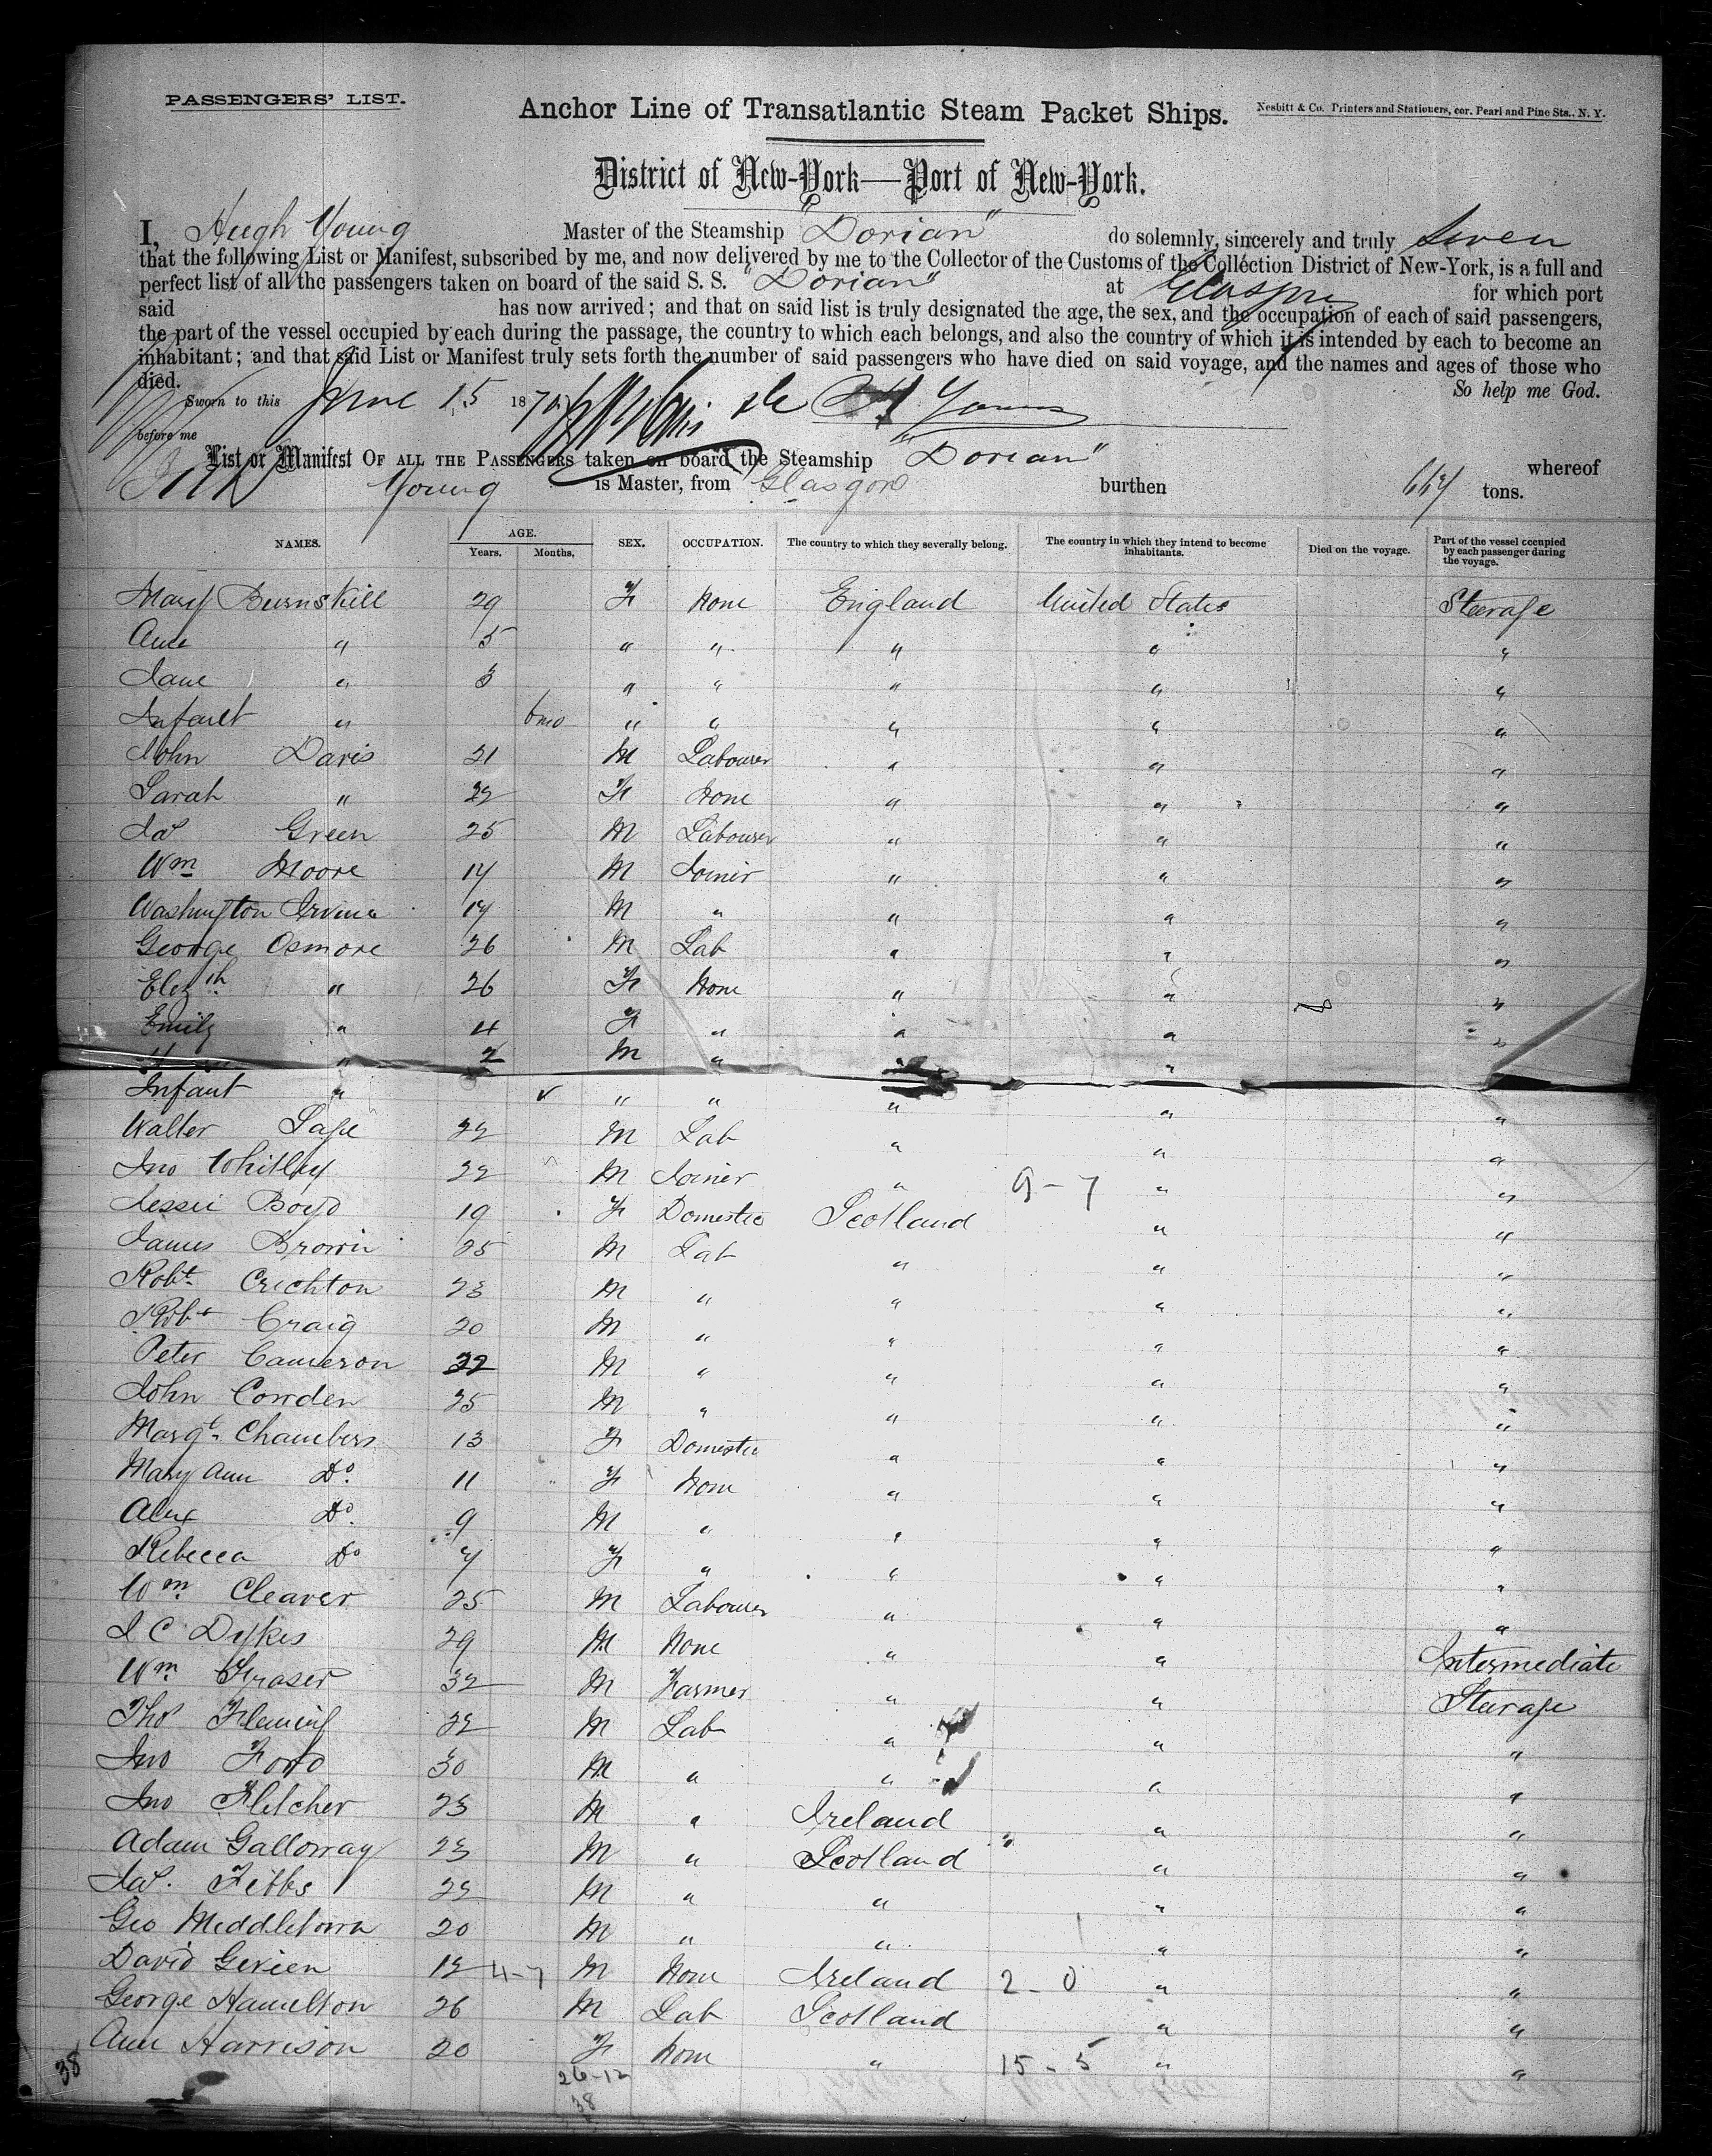 PASSENGERS' LIST.
Anchor Line of Transatlantic Steam Packet Ships.
Nesbitt & Co. Printers and Stationers, cor. Pearl and Pine Sts., N. Y.
District of New-York—Port of New-York.
I, Hugh Young Master of the Steamship "Dorian" do solemnly, sincerely and truly
that the following List or Manifest, subscribed by me, and now delivered by me to the Collector of the Customs of the Collection District of New-York, is a full and
perfect list of all the passengers taken on board of the said S. S. "Dorian" at Glasgow for which port
said has now arrived; and that on said list is truly designated the age, the sex, and the occupation of each of said passengers,
the part of the vessel occupied by each during the passage, the country to which each belongs, and also the country of which it is intended by each to become an
inhabitant; and that said List or Manifest truly sets forth the number of said passengers who have died on said voyage, and the names and ages of those who
died. So help me God.
Sworn to this June 15 187 H Young
before me
List or Manifest OF ALL THE PASSENGERS taken on board the Steamship "Dorian" whereof
Young is Master, from Glasgow burthen tons.
NAMES. AGE. Years. Months. SEX. OCCUPATION. The country to which they severally belong. The country in which they intend to become inhabitants. Died on the voyage. Part of the vessel occupied by each passenger during the voyage.
Mary Burnskill 29 F None England United States Steerage
Ann " 5 " " " " "
Jane " 3 " " " " "
Infant " 6mo " " " " "
John Davis 21 M Labourer " " "
Sarah " 22 F None " " "
Jas Green 25 M Labourer " " "
Wm Moore 17 M Joiner " " "
Washington Irvine 17 M " " " "
George Osmore 26 M Lab " " "
Elizth " 26 F None " " "
Emily " 4 F " " " "
" 2 M " " " "
Infant " " " " " "
Walter Sage 22 M Lab " " "
Jno Whitley 22 M Joiner " 9-7 " "
Jessie Boyd 19 F Domestic Scotland " "
James Brown 25 M Lab " " "
Robt Crichton 23 M " " " "
Robt Craig 20 M " " " "
Peter Cameron 22 M " " " "
John Cowden 25 M " " " "
Margt Chambers 13 F Domestic " " "
Mary Ann Do. 11 F None " " "
Alex Do. 9 M " " " "
Rebecca Do 7 F " " " "
Wm Cleaver 25 M Labourer " " "
J C Dykes 29 M None " " Intermediate
Wm Fraser 32 M Farmer " " Steerage
Thos Fleming 22 M Lab " " "
Jno Ford 30 M " " " "
Jno Fletcher 23 M " Ireland " "
Adam Galloway 23 M " Scotland " "
Jas. Fibbs 22 M " " " "
Geo Middletown 20 M " " " "
David Girien 12 4-7 M None Ireland 2-0 " "
George Hamilton 26 M Lab Scotland " "
Ann Harrison 20 F None " 15-5 " "
38 26-12
38